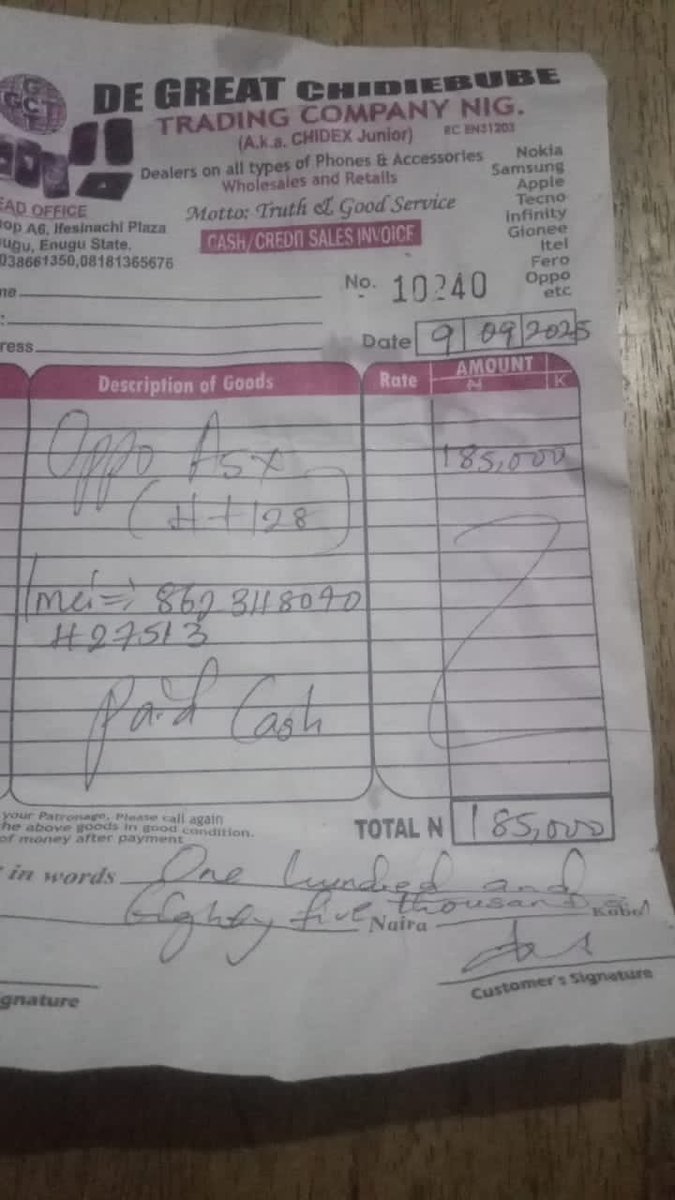 GCT
DE GREAT CHIDIEBUBE
TRADING COMPANY NIG.
(A.k.a. CHIDEX Junior) RC EN31203
Dealers on all types of Phones & Accessories
Wholesales and Retails
Motto: Truth & Good Service
CASH/CREDIT SALES INVOICE
Nokia
Samsung
Apple
Tecno
Infinity
Gionee
Itel
Fero
Oppo
etc
EAD OFFICE
op A6, Ifesinachi Plaza
ugu, Enugu State.
038661350,08181365676
me
No. 10240
:
ress
Date 9 09 2025
Description of Goods Rate AMOUNT
N K
Oppo A5x 185,000
(4+128)
Imei=: 862348070
427513
Paid Cash
your Patronage, Please call again
he above goods in good condition.
of money after payment
TOTAL N 185,000
in words One hundred and
Eighty five thousand Naira Kobo
gnature
Customer's Signature